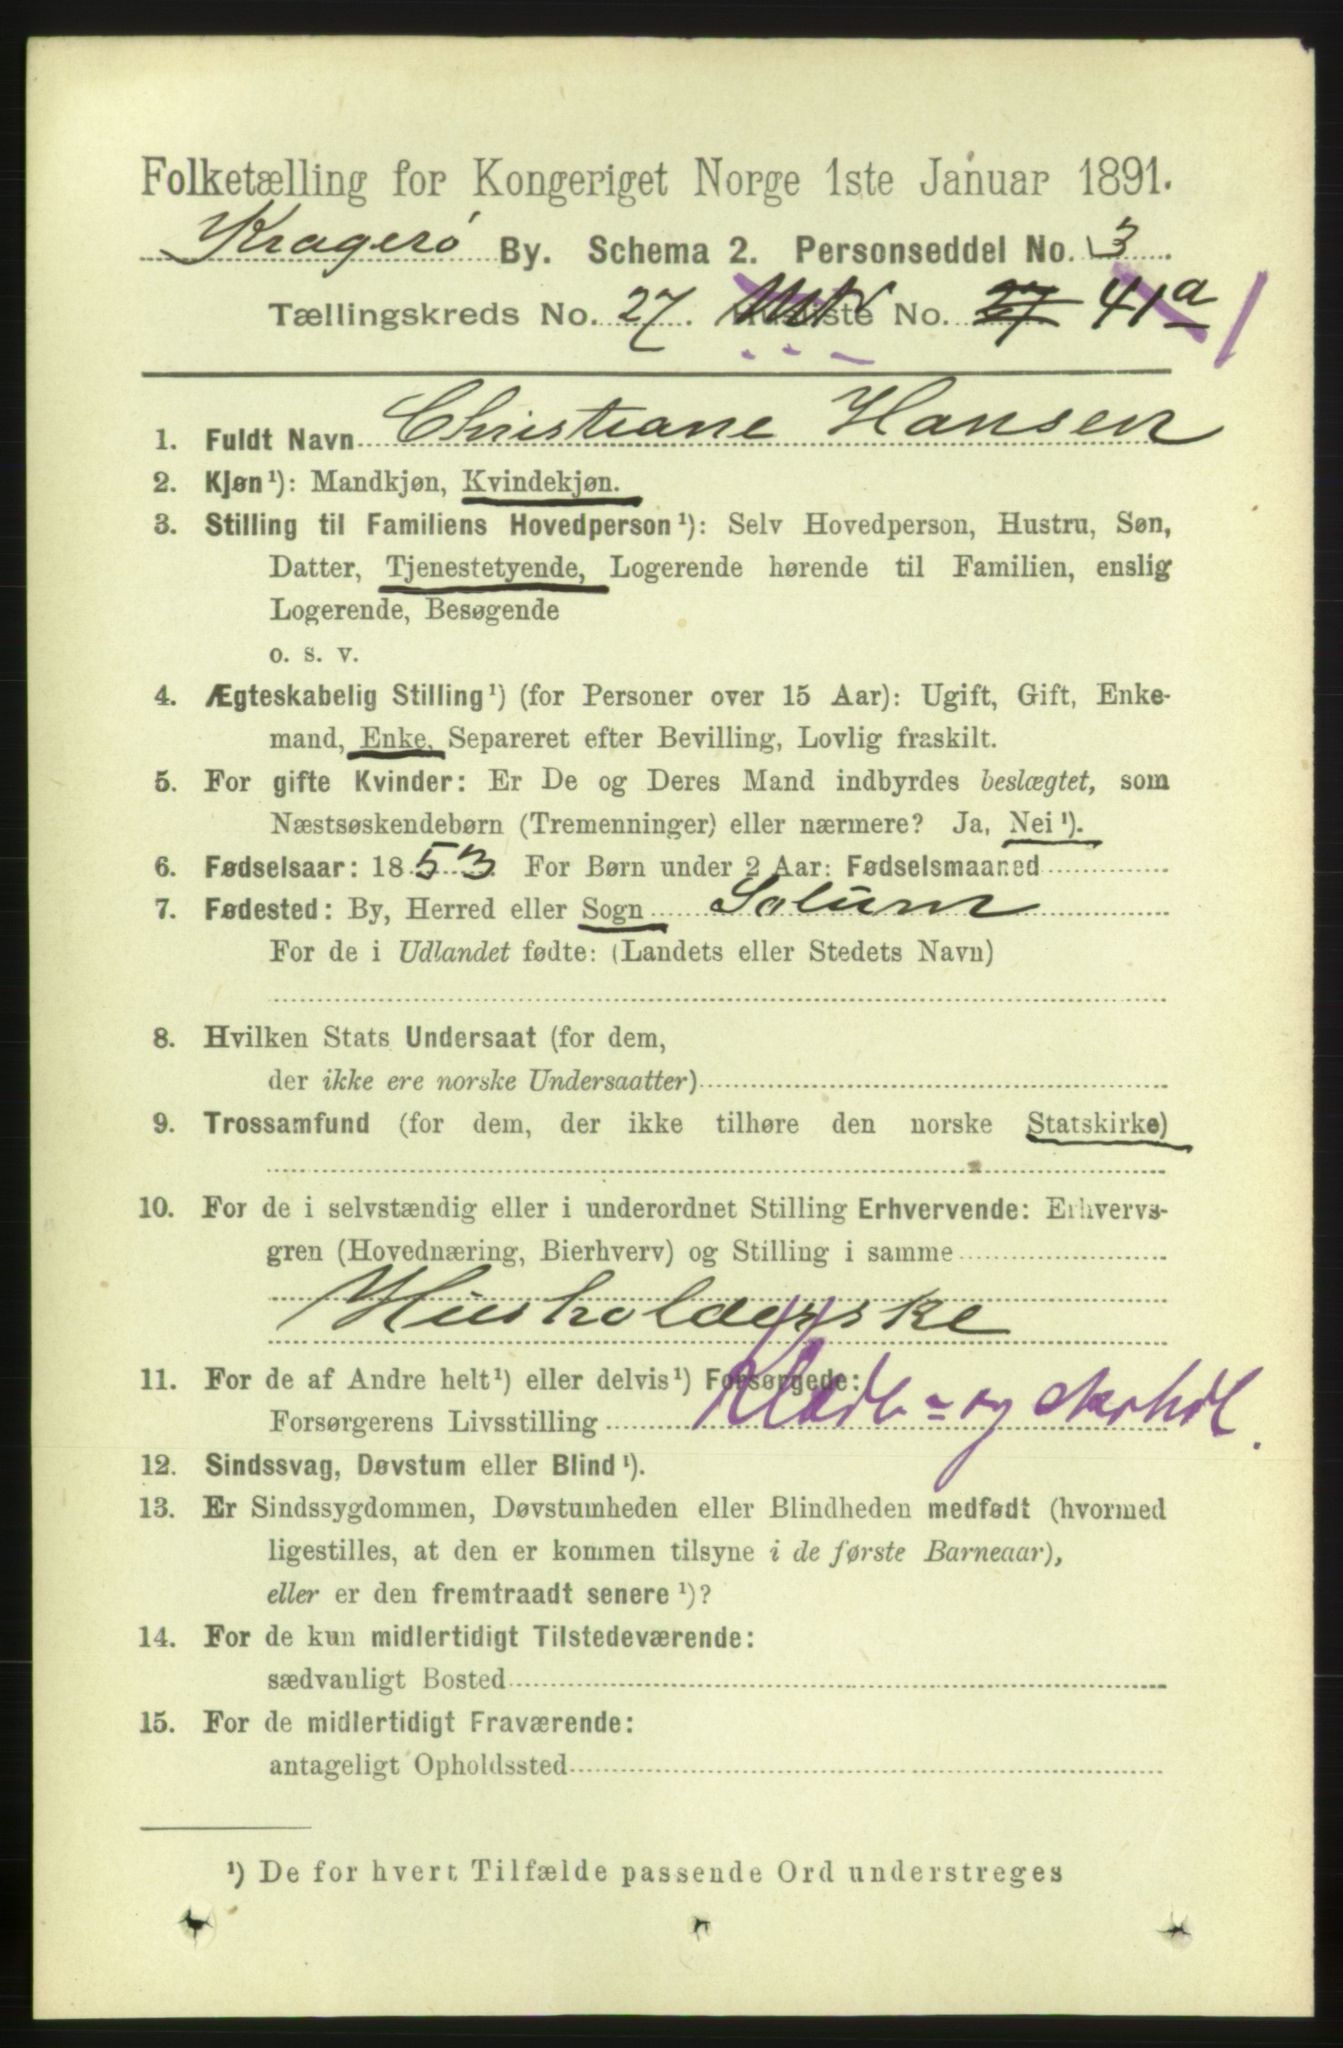 Folketælling for Kongeriget Norge 1ste Januar 1891.
Kragerø By. Schema 2. Personseddel No. 3
Tællingskreds No. 27 Mtr No. 27 41a
1. Fuldt Navn Christiane Hansen
2. Kjøn¹): Mandkjøn, Kvindekjøn.
3. Stilling til Familiens Hovedperson¹): Selv Hovedperson, Hustru, Søn,
Datter, Tjenestetyende, Logerende hørende til Familien, enslig
Logerende, Besøgende
o. s. v.
4. Ægteskabelig Stilling¹) (for Personer over 15 Aar): Ugift, Gift, Enke-
mand, Enke, Separeret efter Bevilling, Lovlig fraskilt.
5. For gifte Kvinder: Er De og Deres Mand indbyrdes beslægtet, som
Næstsøskendebørn (Tremenninger) eller nærmere? Ja, Nei¹).
6. Fødselsaar: 1853 For Børn under 2 Aar: Fødselsmaaned
7. Fødested: By, Herred eller Sogn Solum
For de i Udlandet fødte: (Landets eller Stedets Navn)
8. Hvilken Stats Undersaat (for dem,
der ikke ere norske Undersaatter)
9. Trossamfund (for dem, der ikke tilhøre den norske Statskirke)
10. For de i selvstændig eller i underordnet Stilling Erhvervende: Erhvervs-
gren (Hovednæring, Bierhverv) og Stilling i samme
Husholderske
11. For de af Andre helt¹) eller delvis¹) Forsørgede:
Forsørgerens Livsstilling
12. Sindssvag, Døvstum eller Blind¹).
13. Er Sindssygdommen, Døvstumheden eller Blindheden medfødt (hvormed
ligestilles, at den er kommen tilsyne i de første Barneaar),
eller er den fremtraadt senere¹)?
14. For de kun midlertidigt Tilstedeværende:
sædvanligt Bosted
15. For de midlertidigt Fraværende:
antageligt Opholdssted
¹) De for hvert Tilfælde passende Ord understreges